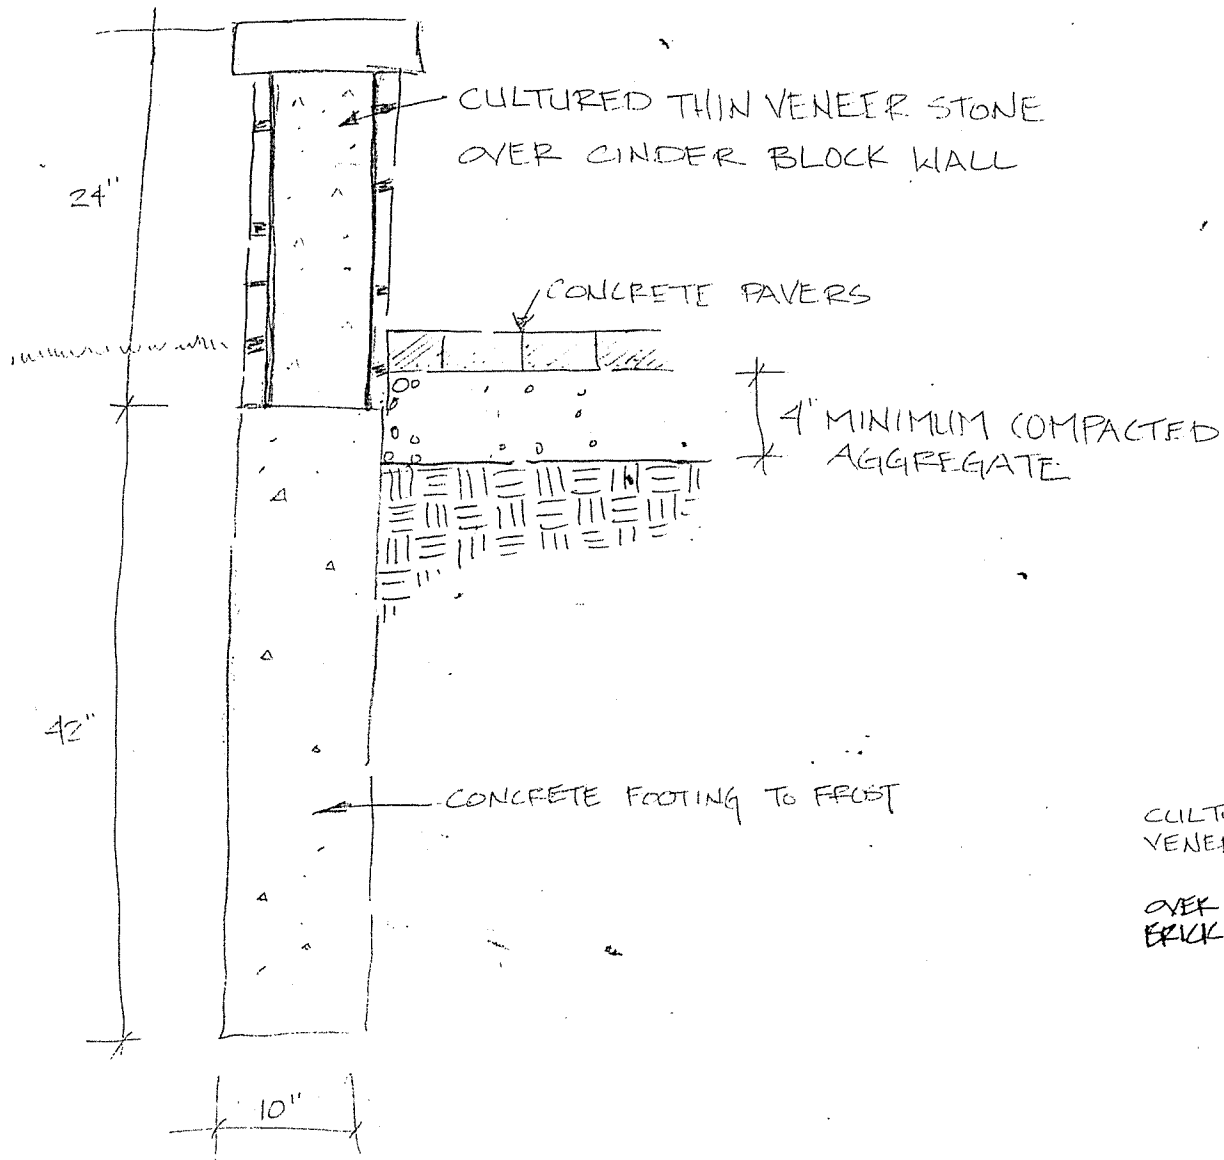 CULTURED THIN VENEER STONE
OVER CINDER BLOCK WALL
24"
CONCRETE PAVERS
4" MINIMUM COMPACTED
AGGREGATE
42"
CONCRETE FOOTING TO FROST
CULT
VENE
OVER
BRICK
10"